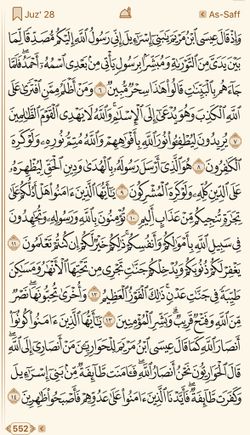 Juz' 28
As-Saff
وَإِذْ قَالَ عِيسَى ٱبْنُ مَرْيَمَ يَٰبَنِىٓ إِسْرَٰٓءِيلَ إِنِّى رَسُولُ ٱللَّهِ إِلَيْكُم مُّصَدِّقًا لِّمَا
بَيْنَ يَدَىَّ مِنَ ٱلتَّوْرَىٰةِ وَمُبَشِّرًۢا بِرَسُولٍ يَأْتِى مِنۢ بَعْدِى ٱسْمُهُۥٓ أَحْمَدُ فَلَمَّا
جَآءَهُم بِٱلْبَيِّنَٰتِ قَالُوا۟ هَٰذَا سِحْرٌ مُّبِينٌ ٦ وَمَنْ أَظْلَمُ مِمَّنِ ٱفْتَرَىٰ عَلَى
ٱللَّهِ ٱلْكَذِبَ وَهُوَ يُدْعَىٰٓ إِلَى ٱلْإِسْلَٰمِ وَٱللَّهُ لَا يَهْدِى ٱلْقَوْمَ ٱلظَّٰلِمِينَ
٧ يُرِيدُونَ لِيُطْفِـُٔوا۟ نُورَ ٱللَّهِ بِأَفْوَٰهِهِمْ وَٱللَّهُ مُتِمُّ نُورِهِۦ وَلَوْ كَرِهَ
ٱلْكَٰفِرُونَ ٨ هُوَ ٱلَّذِىٓ أَرْسَلَ رَسُولَهُۥ بِٱلْهُدَىٰ وَدِينِ ٱلْحَقِّ لِيُظْهِرَهُۥ
عَلَى ٱلدِّينِ كُلِّهِۦ وَلَوْ كَرِهَ ٱلْمُشْرِكُونَ ٩ يَٰٓأَيُّهَا ٱلَّذِينَ ءَامَنُوا۟ هَلْ أَدُلُّكُمْ عَلَىٰ
تِجَٰرَةٍ تُنجِيكُم مِّنْ عَذَابٍ أَلِيمٍ ١٠ تُؤْمِنُونَ بِٱللَّهِ وَرَسُولِهِۦ وَتُجَٰهِدُونَ
فِى سَبِيلِ ٱللَّهِ بِأَمْوَٰلِكُمْ وَأَنفُسِكُمْ ذَٰلِكُمْ خَيْرٌ لَّكُمْ إِن كُنتُمْ تَعْلَمُونَ ١١
يَغْفِرْ لَكُمْ ذُنُوبَكُمْ وَيُدْخِلْكُمْ جَنَّٰتٍ تَجْرِى مِن تَحْتِهَا ٱلْأَنْهَٰرُ وَمَسَٰكِنَ
طَيِّبَةً فِى جَنَّٰتِ عَدْنٍ ذَٰلِكَ ٱلْفَوْزُ ٱلْعَظِيمُ ١٢ وَأُخْرَىٰ تُحِبُّونَهَا نَصْرٌ
مِّنَ ٱللَّهِ وَفَتْحٌ قَرِيبٌ وَبَشِّرِ ٱلْمُؤْمِنِينَ ١٣ يَٰٓأَيُّهَا ٱلَّذِينَ ءَامَنُوا۟ كُونُوٓا۟
أَنصَارَ ٱللَّهِ كَمَا قَالَ عِيسَى ٱبْنُ مَرْيَمَ لِلْحَوَارِيِّـۧنَ مَنْ أَنصَارِىٓ إِلَى ٱللَّهِ
قَالَ ٱلْحَوَارِيُّونَ نَحْنُ أَنصَارُ ٱللَّهِ فَـَٔامَنَت طَّآئِفَةٌ مِّنۢ بَنِىٓ إِسْرَٰٓءِيلَ
وَكَفَرَت طَّآئِفَةٌ فَأَيَّدْنَا ٱلَّذِينَ ءَامَنُوا۟ عَلَىٰ عَدُوِّهِمْ فَأَصْبَحُوا۟ ظَٰهِرِينَ ١٤
552